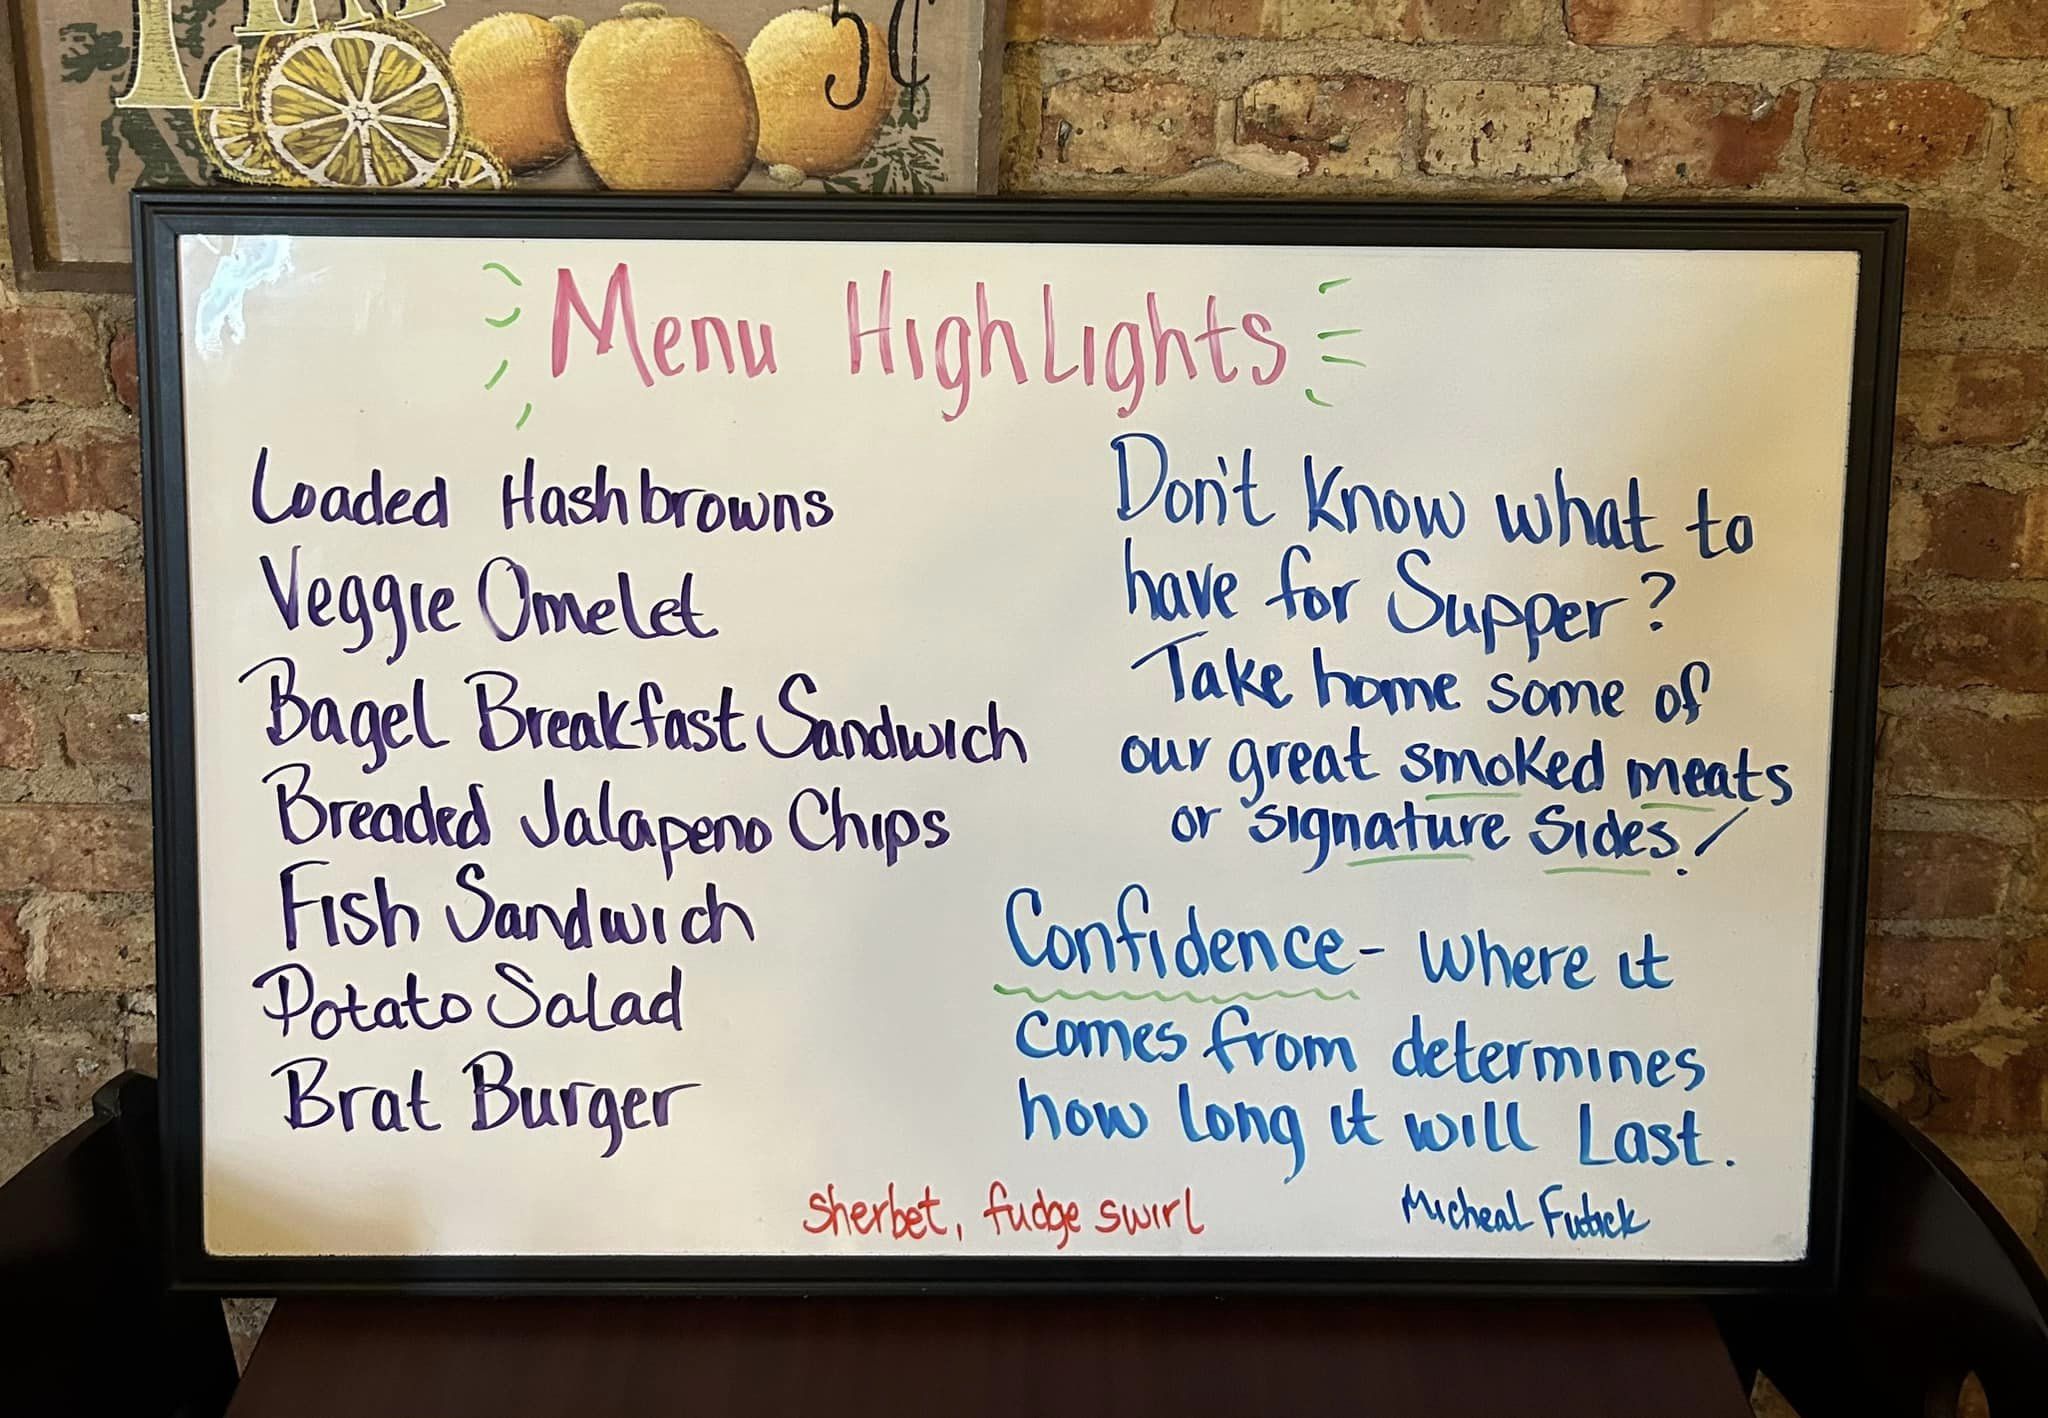 5¢
Menu HighLights
Loaded Hashbrowns
Veggie Omelet
Bagel Breakfast Sandwich
Breaded Jalapeno Chips
Fish Sandwich
Potato Salad
Brat Burger
Don't know what to
have for Supper?
Take home some of
our great smoked meats
or signature Sides!
Confidence - where it
comes from determines
how long it will Last.
Micheal
sherbet, fudge swirl